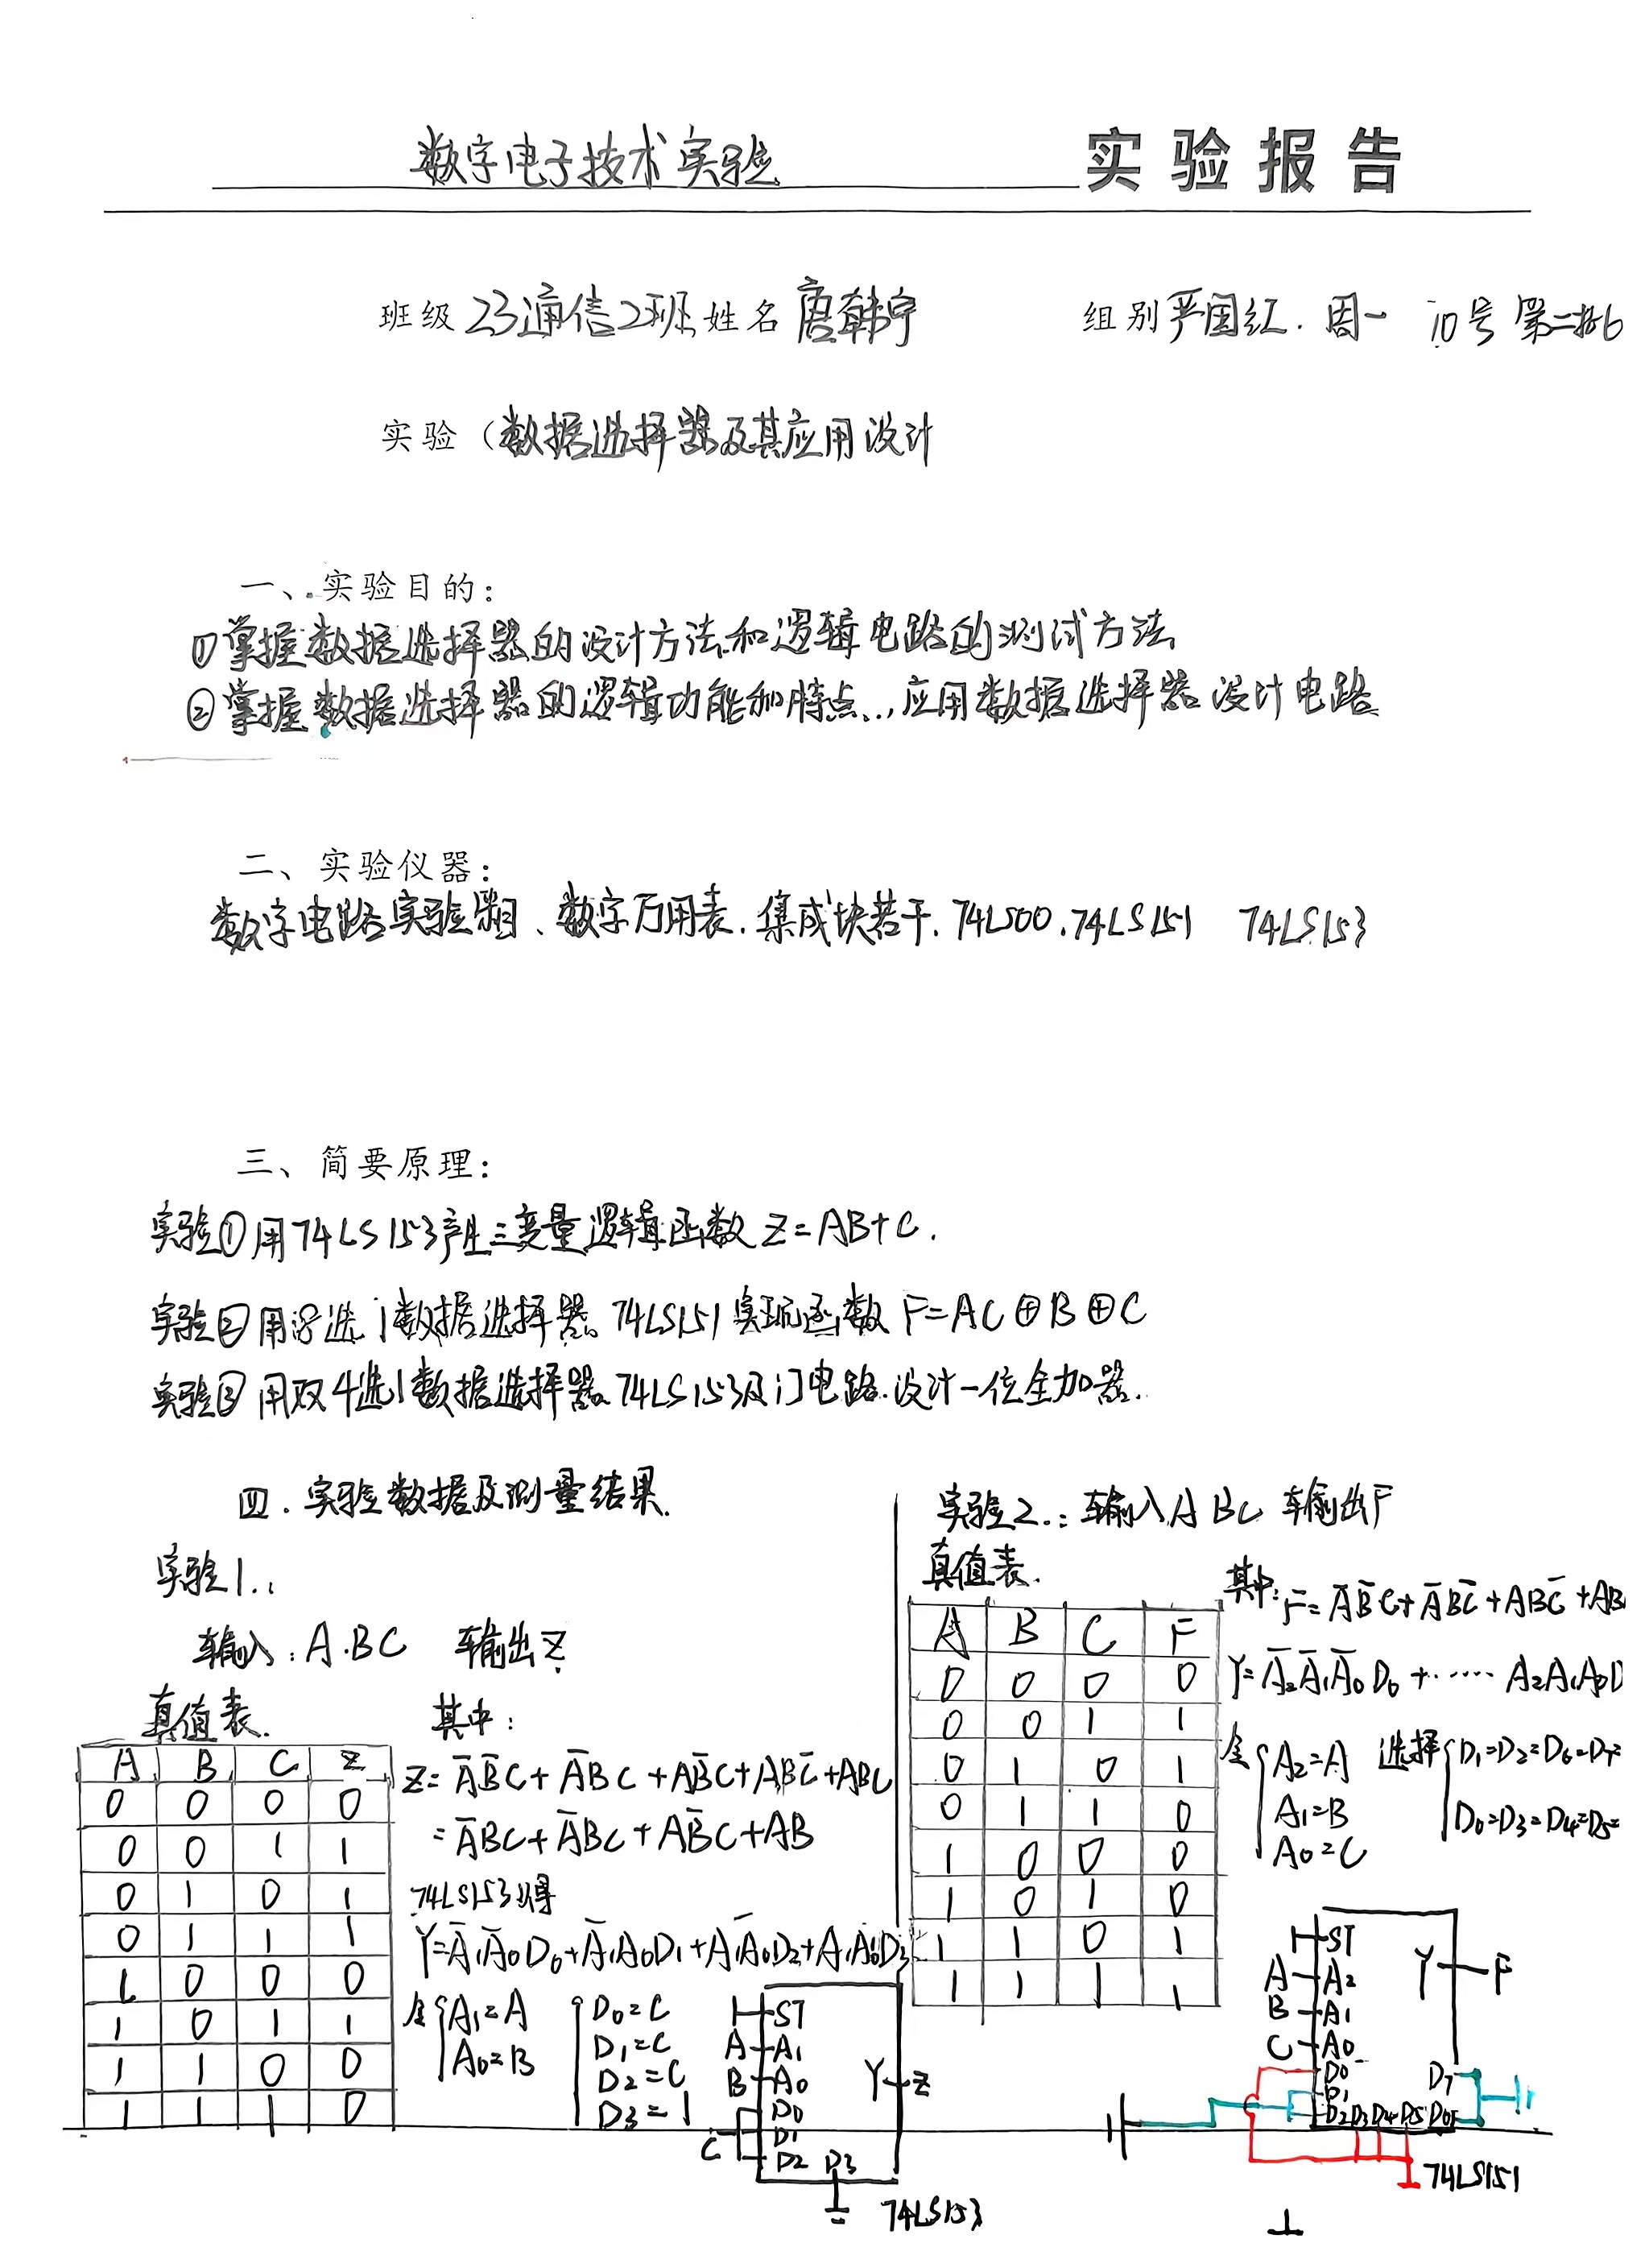 数字电子技术实验 实验报告
班级 23通信2班 姓名 唐韩宇 组别 严国红. 周一 10号 第二批6
实验（数据选择器及其应用设计
一、实验目的：
①掌握数据选择器的设计方法和逻辑电路的测试方法
②掌握数据选择器的逻辑功能和特点., 应用数据选择器设计电路
二、实验仪器：
数字电路实验箱、数字万用表. 集成块若干. 74LS00. 74LS151 74LS153
三、简要原理：
实验① 用74LS153产生三变量逻辑函数 Z=AB+C.
实验② 用8选1数据选择器 74LS151 实现函数 F=AC⊕B⊕C
实验③ 用双4选1数据选择器 74LS153及门电路. 设计一位全加器.
四. 实验数据及测量结果.
实验1.:
输入: A.BC 输出Z
真值表.
A B C Z
0 0 0 0
0 0 1 1
0 1 0 1
0 1 1 1
1 0 0 0
1 0 1 1
1 1 0 0
1 1 1 0
其中:
Z= A̅B̅C+A̅BC+AB̅C+ABC̅+ABC
= A̅BC+A̅BC+AB̅C+AB
74LS153得
Y=A̅₁A̅₀D₀+A̅₁A₀D₁+A₁A̅₀D₂+A₁A₀D₃
令 A₁=A
A₀=B
D₀=C
D₁=C
D₂=C
D₃=1
ST
A A₁
B A₀
Y Z
D₀
D₁
C
D₂ D₃
74LS153
实验2.: 输入A BC 输出F
真值表.
A B C F
0 0 0 0
0 0 1 1
0 1 0 1
0 1 1 0
1 0 0 0
1 0 1 0
1 1 0 1
1 1 1 1
其中: F= A̅B̅C+A̅BC̅+ABC̅+AB
Y=A̅₂A̅₁A̅₀D₀+······A₂A₁A₀D
令 A₂=A
A₁=B
A₀=C
选择 D₁=D₂=D₆=D₇=
D₀=D₃=D₄=D₅=
ST
A A₂ Y F
B A₁
C A₀
D₀ D₇
D₁
D₂ D₃ D₄ D₅ D₆
74LS151